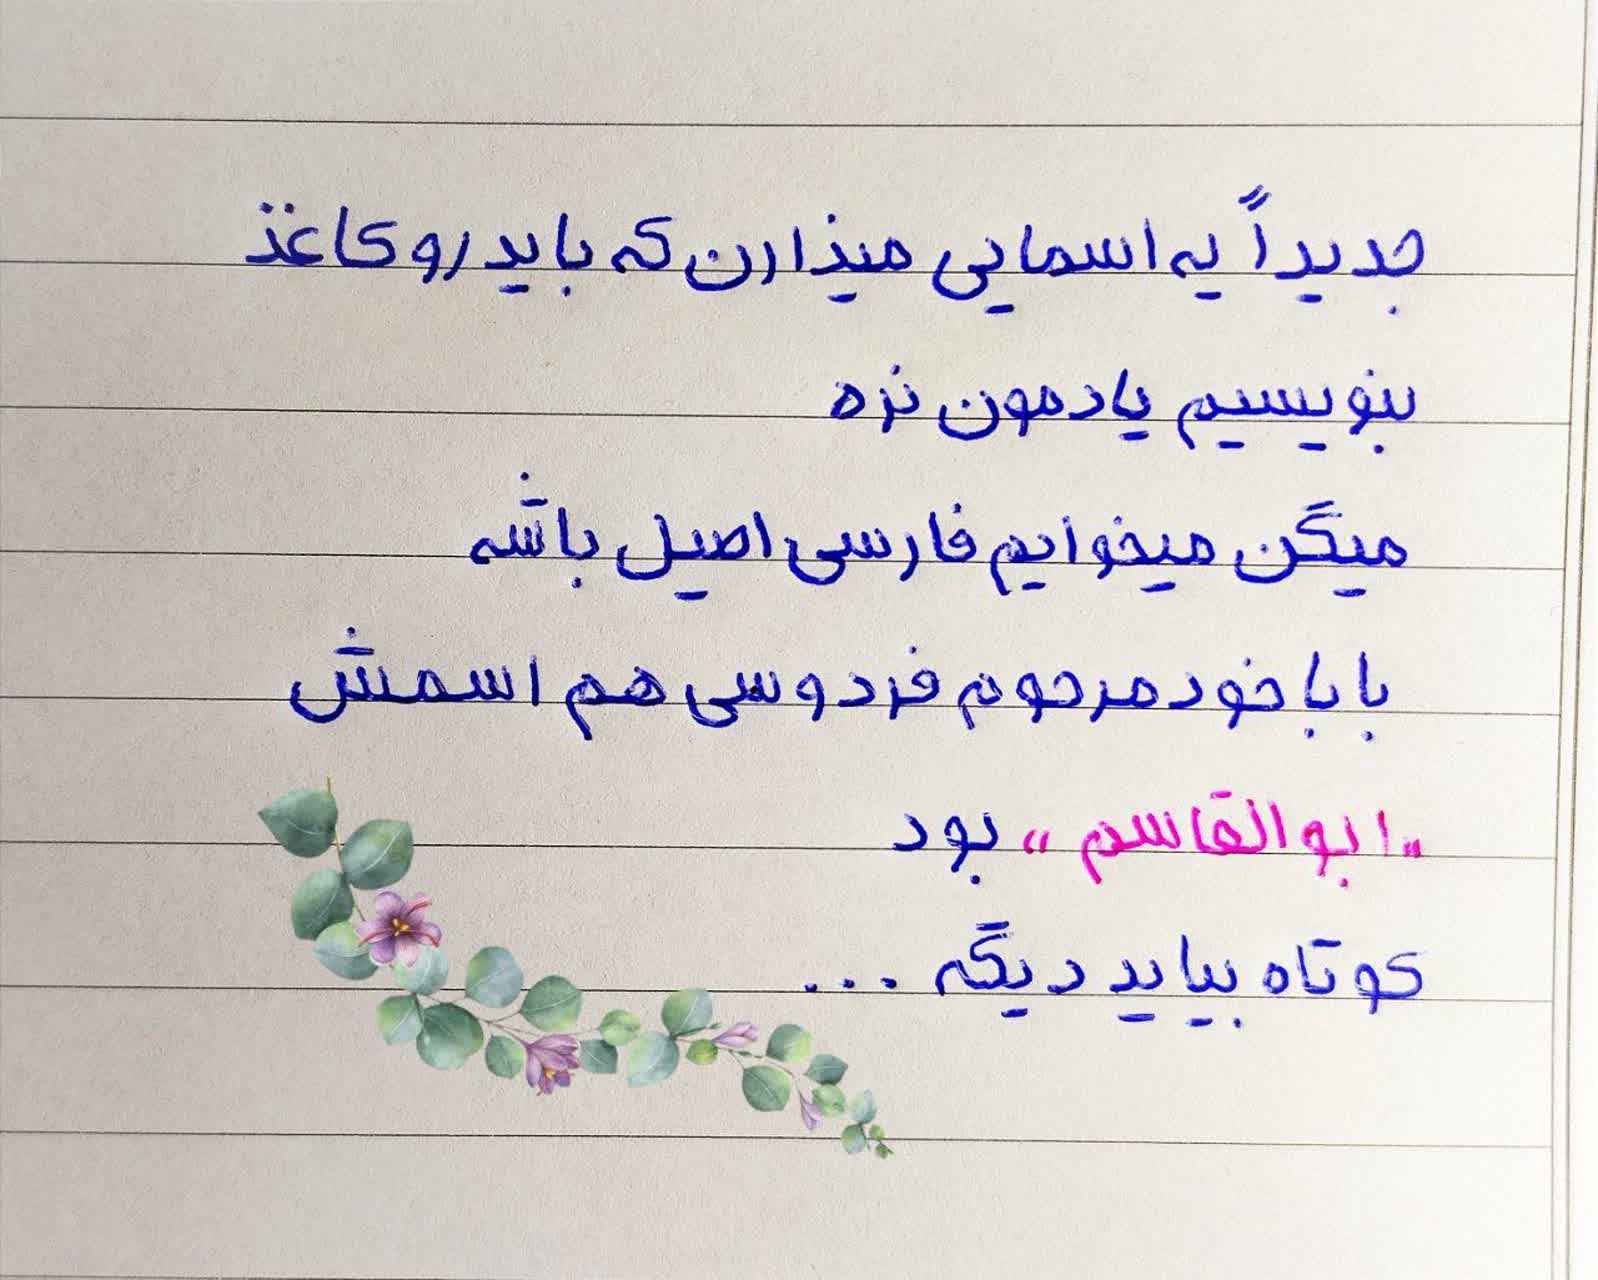 جدیداً یه اسمایی میذارن که باید رو کاغذ
بنویسیم یادمون نره
میگن میخوایم فارسی اصیل باشه
بابا خود مرحوم فردوسی هم اسمش
"ابوالقاسم" بود
کوتاه بیاید دیگه ...